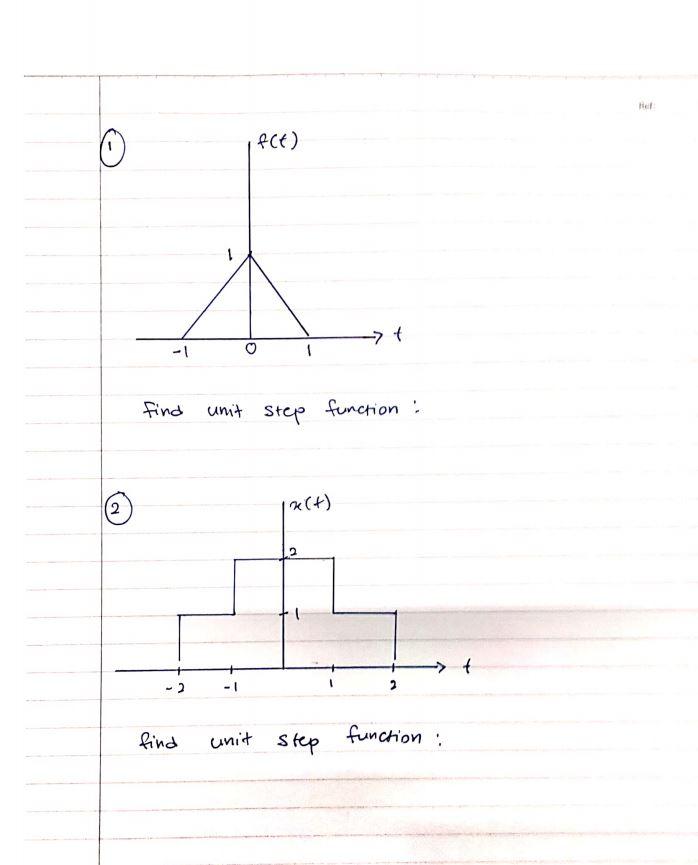 Ref
1
f(t)
1
-1 0 1 t
find unit step function :
2
x(t)
2
1
-2 -1 1 2 t
find unit step function :